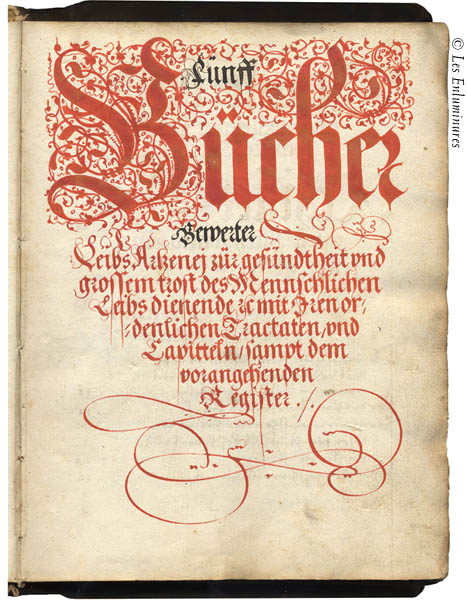 Fünff
Bücher
Bewerter
Leibs Artzenej zür gesündtheit vnd
grossem trost des Mennschlichen
Leibs dienende ꝛc mit Iren or-
-denlichen Tractaten, vnd
Capitteln / sampt dem
vorangehenden
Register ./.
© Les Enluminures